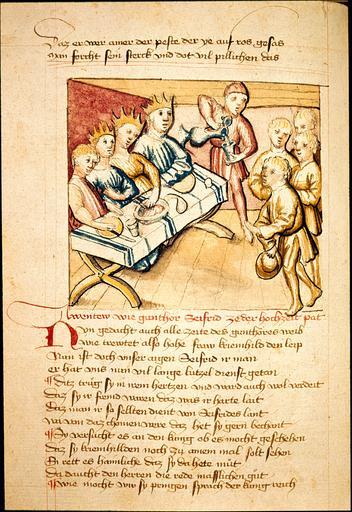 Daz er wer amer der peste der ye auf ros gesas
man forcht sein sterck vnd dot vil pillichen das
Awentew wie gunthor Seifrid ze der hochzeit pat
Nvn gedacht auch alle zeite des genthores weib
wie trewtet also hohe fraw kriemhild den leip
Nun ist doch vnser aigen Seifrid ir man
er hat vns nun vil lange lutzel dienst getan
Ditz truig sy in irem hertzen und ward auch wol verdeit
daz sy ir fremd waren daz was ir harte lait
daz man ir so sellten dient von Seifrides lant
wa von daz chomen were daz het sy gern bechant
Sy versucht es an den kunig ob es mocht geschehen
daz sy kriemhillden noch zu ainem mal solt sehen
Si rett es haimliche daz sy da hete mut
da daucht den herren die rede masslichen gut
wie mocht wir sy pringen sprach der kunig reich